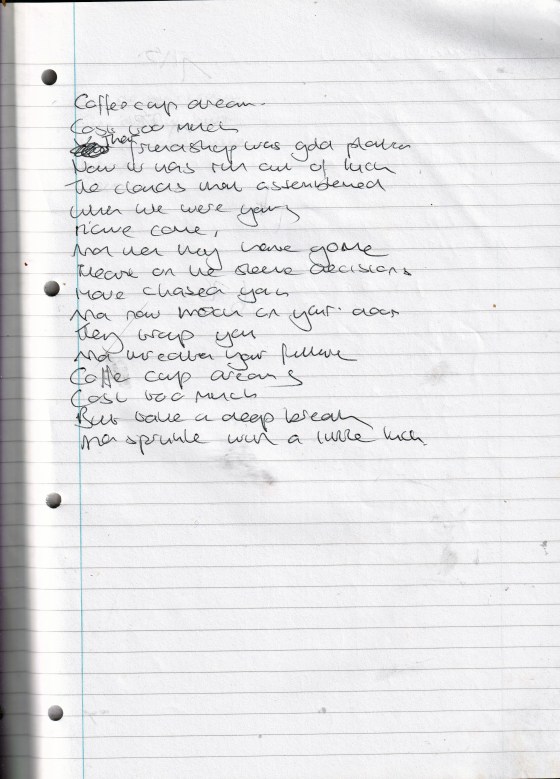 Coffee cup dream.
Cost too much
Their friendship was gold platen
Now it has run out of luck
The clouds that assembened
when we were young
Have come,
And then they have gone
Heart on the sleeve decisions
Have chased you
And now knock on your door
They trap you
And threaten your future
Coffe cup dreams
Cost too much
But take a deep breath
And sprinkle with a little luck